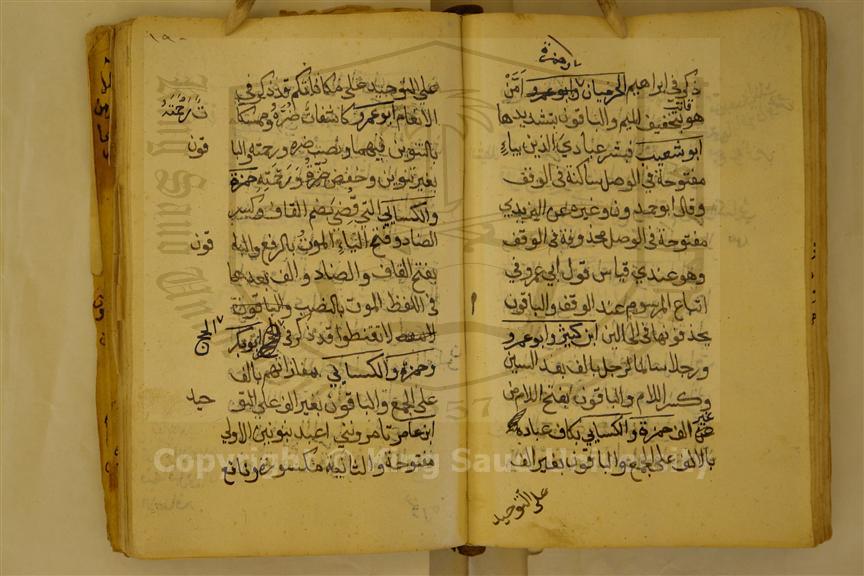 ذكر في ابراهيم الحرميان وابو عمرو امن
هو قانت بتخفيف الميم والباقون بتشديدها
ابو شعيب فبشر عبادي الذين بياء
مفتوحة في الوصل ساكنة في الوقف
وقال ابو حمدون وغيره عن اليزيدي
مفتوحة في الوصل محذوفة في الوقف
وهو عندي قياس قول ابي عمرو في
اتباع المرسوم عند الوقف والباقون
يحذفونها في الحالين ابن كثير وابو عمرو
ورجلا سالما لرجل بالف بعد السين
وكسر اللام والباقون بفتح اللام من
غير الف حمزة والكسايي بكاف عباده
بالالف على الجمع والباقون بغير الف
على التوحيد
١٩٠
على التوحيد على مكاناتكم قد ذكر في
الانعام ابو عمرو كاشفات ضره وممسكات رحمته
بالتنوين فيهما ونصب ضره ورحمته والباقون
بغير تنوين وخفض ضره ورحمته حمزة
والكسايي التي قضي بضم القاف وكسر
الصاد وفتح الياء الموت بالرفع والباقون
بفتح القاف والصاد والف بعدها
في اللفظ الموت بالنصب والباقون
لا تقنطوا قد ذكر في الحجر ابو بكر
وحمزة والكسايي بمفازاتهم بالف
على الجمع والباقون بغير الف على التوحيد
ابن عامر تأمرونني اعبد بنونين الاولى
مفتوحة والثانية مكسورة ونافع
Copyright © King Saud University
1957